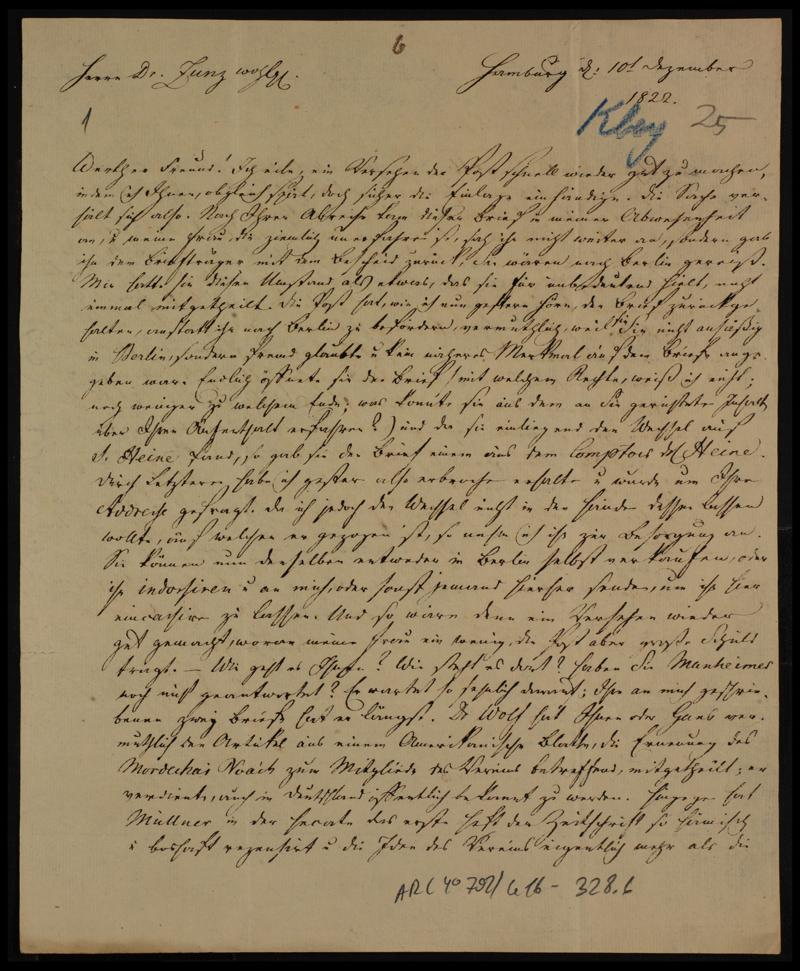 6
Herrn Dr. Zunz wohlgb.
Hamburg d: 10t Dezember
1822.
Kley 25
1
Werther Freund! Ich eile, ein Versehen der Post schnell wieder gut zu machen,
indem ich Ihnen, obgleich spät, doch sicher die Einlage einhändige. Die Sache ver-
hält sich also. Nach Ihrer Abreise kam dieser Brief in meiner Abwesenheit
an, u meine Frau, die ziemlich unerfahren ist, nahm ihn nicht weiter an, sondern gab
ihn dem Briefträger mit dem Bescheid zurück, Sie wären nach Berlin gereist.
Mir hatte sie diesen Umstand als etwas, das sie für unbedeutend hielt, nicht
einmal mitgetheilt. Die Post hat, wie ich nun gestern höre, den Brief zurückge-
halten, anstatt ihn nach Berlin zu befördern, vermuthlich, weil sie Sie nicht ansäßig
in Berlin, sondern fremd glaubte u kein näheres Merkmal auf dem Briefe ange-
geben war. Endlich öffnete sie den Brief (mit welchem Rechte, weiß ich nicht;
noch weniger zu welchem Ende; was konnte sie aus dem an Sie gerichteten Inhalte
über Ihren Aufenthalt erfahren?) und da sie einliegend den Wechsel auf
S. Heine fand, so gab sie den Brief einem aus dem Comptoir des Heine.
Durch Letztern habe ich gestern also erbrochen erhalten u wurde um Ihre
Addresse gefragt. Da ich jedoch den Wechsel nicht in den Händen dessen lassen
wollte, auf welchen er gezogen ist, so nahm ich ihn zur Besorgung an.
Sie können nun denselben entweder in Berlin selbst verkaufen, oder
ihn indossiren u an mich, oder sonst jemand hierher senden, um ihn hier
eincassiren zu lassen. Und so wäre denn ein Versehen wieder
gut gemacht, woran meine Frau ein wenig, die Post aber große Schuld
trägt. — Wie geht es Ihnen? Wie steht es dort? Haben Sie Manheimer
noch nicht geantwortet? Er wartet so sehnlich darauf; Ihre an mich geschrie-
benen zwey Briefe hat er längst. Dr Wolf hat Ihnen oder Gans ver-
muthlich den Artikel aus einem Amerikanischen Blatte, die Ernennung des
Mordechai Noah zum Mitgliede des Vereins betreffend, mitgetheilt; er
verdiente, auch in Deutschland öffentlich bekannt zu werden. Hingegen hat
Müllner in der Hecate das erste Heft der Zeitschrift so hämisch
u boshaft rezensirt u die Idee des Vereins eigentlich mehr als die
ARC 4° 792/G 16 - 328.6